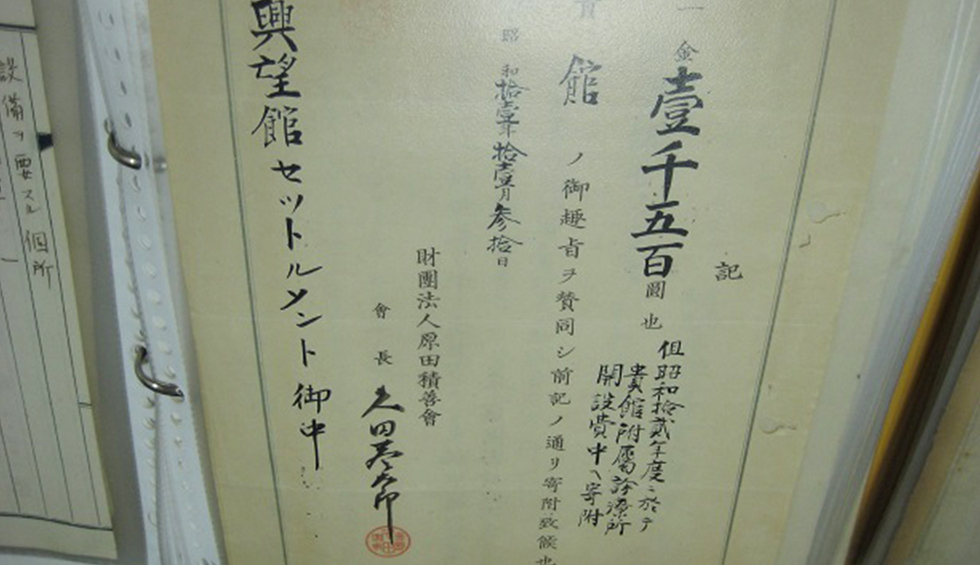 記
一金壹千五百圓也
但昭和拾貳年度ニ於テ
貴館附屬診療所
開設費中ヘ寄附
貴館ノ御趣旨ヲ賛同シ前記ノ通リ寄附致候也
昭和拾壹年拾壹月参拾日
財團法人原田積善會
會長
興望館セットルメント御中
設備ヲ要スル個所